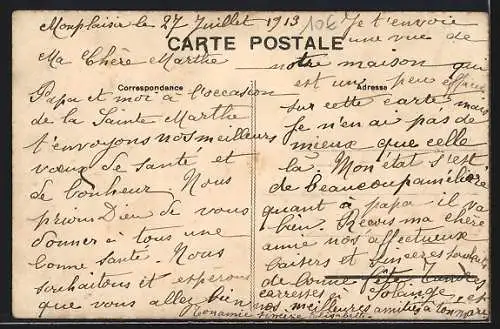 Monplaisir le 27 Juillet 1913
10€
CARTE POSTALE
Correspondance
Adresse
Ma Chère Marthe
Papa et moi à l'occasion
de la Sainte Marthe
t'envoyons nos meilleurs
vœux de santé et
de bonheur. Nous
prions Dieu de vous
donner à tous une
bonne santé. Nous
souhaitons et espérons
que vous allez bien
Je t'envoie
une vue de
notre maison qui
est un peu effacée
sur cette carte mais
je n'en ai pas de
mieux que celle
là. Mon état s'est
de beaucoup amélioré
quant à papa il va
bien. Reçois ma chère
amie nos affectueux
baisers et sincères souhaits
de bonne fête. Tendres
caresses à Solange et
nos meilleures amitiés à ton mari
Ton amie sincère Elisabeth